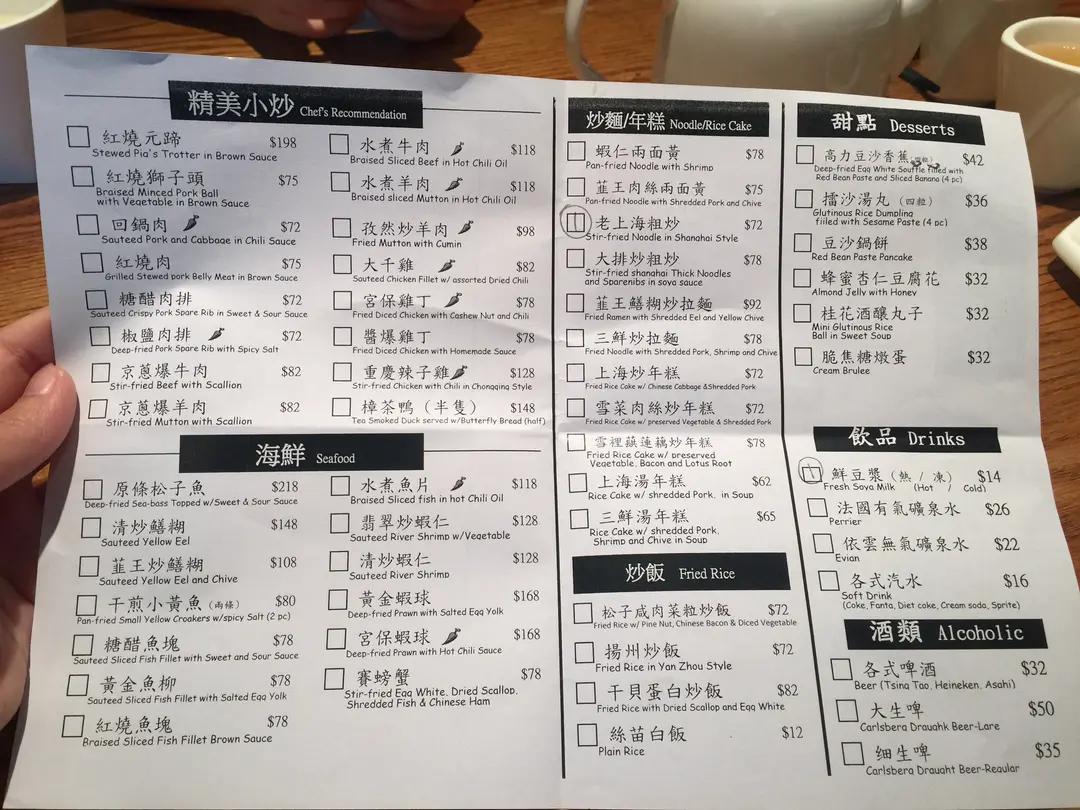 精美小炒 Chef's Recommendation
紅燒元蹄 $198
Stewed Pig's Trotter in Brown Sauce
紅燒獅子頭 $75
Braised Minced Pork Ball
with Vegetable in Brown Sauce
回鍋肉 $72
Sauteed Pork and Cabbage in Chili Sauce
紅燒肉 $75
Grilled Stewed pork Belly Meat in Brown Sauce
糖醋肉排 $72
Sauteed Crispy Pork Spare Rib in Sweet & Sour Sauce
椒鹽肉排 $72
Deep-fried Pork Spare Rib with Spicy Salt
京蔥爆牛肉 $82
Stir-fried Beef with Scallion
京蔥爆羊肉 $82
Stir-fried Mutton with Scallion
水煮牛肉 $118
Braised Sliced Beef in Hot Chili Oil
水煮羊肉 $118
Braised sliced Mutton in Hot Chili Oil
孜然炒羊肉 $98
Fried Mutton with Cumin
大千雞 $82
Sauteed Chicken Fillet w/ assorted Dried Chili
宮保雞丁 $78
Fried Diced Chicken with Cashew Nut and Chili
醬爆雞丁 $78
Fried Diced Chicken with Homemade Sauce
重慶辣子雞 $128
Stir-fried Chicken with Chili in Chongqing Style
樟茶鴨（半隻） $148
Tea Smoked Duck served w/Butterfly Bread (half)
海鮮 Seafood
原條松子魚 $218
Deep-fried Sea-bass Topped w/Sweet & Sour Sauce
清炒鱔糊 $148
Sauteed Yellow Eel
韮王炒鱔糊 $108
Sauteed Yellow Eel and Chive
干煎小黃魚（兩條） $80
Pan-fried Small Yellow Croakers w/spicy Salt (2 pc)
糖醋魚塊 $78
Sauteed Sliced Fish Fillet with Sweet and Sour Sauce
黃金魚柳 $78
Sauteed Sliced Fish Fillet with Salted Egg Yolk
紅燒魚塊 $78
Braised Sliced Fish Fillet Brown Sauce
水煮魚片 $118
Braised Sliced fish in hot Chili Oil
翡翠炒蝦仁 $128
Sauteed River Shrimp w/Vegetable
清炒蝦仁 $128
Sauteed River Shrimp
黃金蝦球 $168
Deep-fried Prawn with Salted Egg Yolk
宮保蝦球 $168
Deep-fried Prawn with Hot Chili Sauce
賽螃蟹 $78
Stir-fried Egg White, Dried Scallop,
Shredded Fish & Chinese Ham
炒麵/年糕 Noodle/Rice Cake
蝦仁兩面黃 $78
Pan-fried Noodle with Shrimp
韮王肉絲兩面黃 $75
Pan-fried Noodle with Shredded Pork and Chive
老上海粗炒 $72
Stir-fried Noodle in Shanghai Style
大排炒粗炒 $78
Stir-fried shanghai Thick Noodles
and Spareribs in soya sauce
韮王鱔糊炒拉麵 $92
Fried Ramen with Shredded Eel and Yellow Chive
三鮮炒拉麵 $78
Fried Noodle with Shredded Pork, Shrimp and Chive
上海炒年糕 $72
Fried Rice Cake w/ Chinese Cabbage &Shredded Pork
雪菜肉絲炒年糕 $72
Fried Rice Cake w/ preserved Vegetable & Shredded Pork
雪裡蕻蓮藕炒年糕 $78
Fried Rice Cake w/ preserved
Vegetable, Bacon and Lotus Root
上海湯年糕 $62
Rice Cake w/ shredded Pork, in Soup
三鮮湯年糕 $65
Rice Cake w/ shredded Pork,
Shrimp and Chive in Soup
炒飯 Fried Rice
松子咸肉菜粒炒飯 $72
Fried Rice w/ Pine Nut, Chinese Bacon & Diced Vegetable
揚州炒飯 $72
Fried Rice in Yan Zhou Style
干貝蛋白炒飯 $82
Fried Rice with Dried Scallop and Egg White
絲苗白飯 $12
Plain Rice
甜點 Desserts
高力豆沙香蕉 $42
Deep-fried Egg White Souffle filled with
Red Bean Paste and Sliced Banana (4 pc)
擂沙湯丸（四粒） $36
Glutinous Rice Dumpling
filled with Sesame Paste (4 pc)
豆沙鍋餅 $38
Red Bean Paste Pancake
蜂蜜杏仁豆腐花 $32
Almond Jelly with Honey
桂花酒釀丸子 $32
Mini Glutinous Rice
Ball in Sweet Soup
脆焦糖燉蛋 $32
Cream Brulee
飲品 Drinks
鮮豆漿（熱 / 凍） $14
Fresh Soya Milk (Hot / Cold)
法國有氣礦泉水 $26
Perrier
依雲無氣礦泉水 $22
Evian
各式汽水 $16
Soft Drink
(Coke, Fanta, Diet coke, Cream soda, Sprite)
酒類 Alcoholic
各式啤酒 $32
Beer (Tsing Tao, Heineken, Asahi)
大生啤 $50
Carlsberg Draughk Beer-Lare
细生啤 $35
Carlsberg Draught Beer-Regular